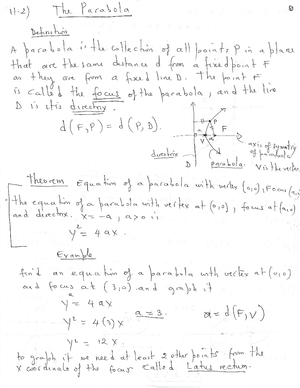 11-2) The Parabola
Definition
A parabola is the collection of all points P in a plane
that are the same distance d from a fixed point F
as they are from a fixed line D. The point F
is called the focus of the parabola, and the line
D is its directrix.
d(F,P) = d(P,D).
axis of symmetry
of parabola
directrix
D
parabola.
V is the vertex
V
F
P
Theorem Equation of a parabola with vertex (0,0), Focus (a,0)
the equation of a parabola with vertex at (0,0), focus at (a,0)
and directrix x = -a, a>0 is
y² = 4ax.
Example
find an equation of a parabola with vertex at (0,0)
and focus at (3,0) and graph it
y² = 4ax
y² = 4(3)x a = 3. a = d(F,V)
y² = 12x.
to graph it we need at least 2 other points from the
x coordinate of the focus called Latus rectum.